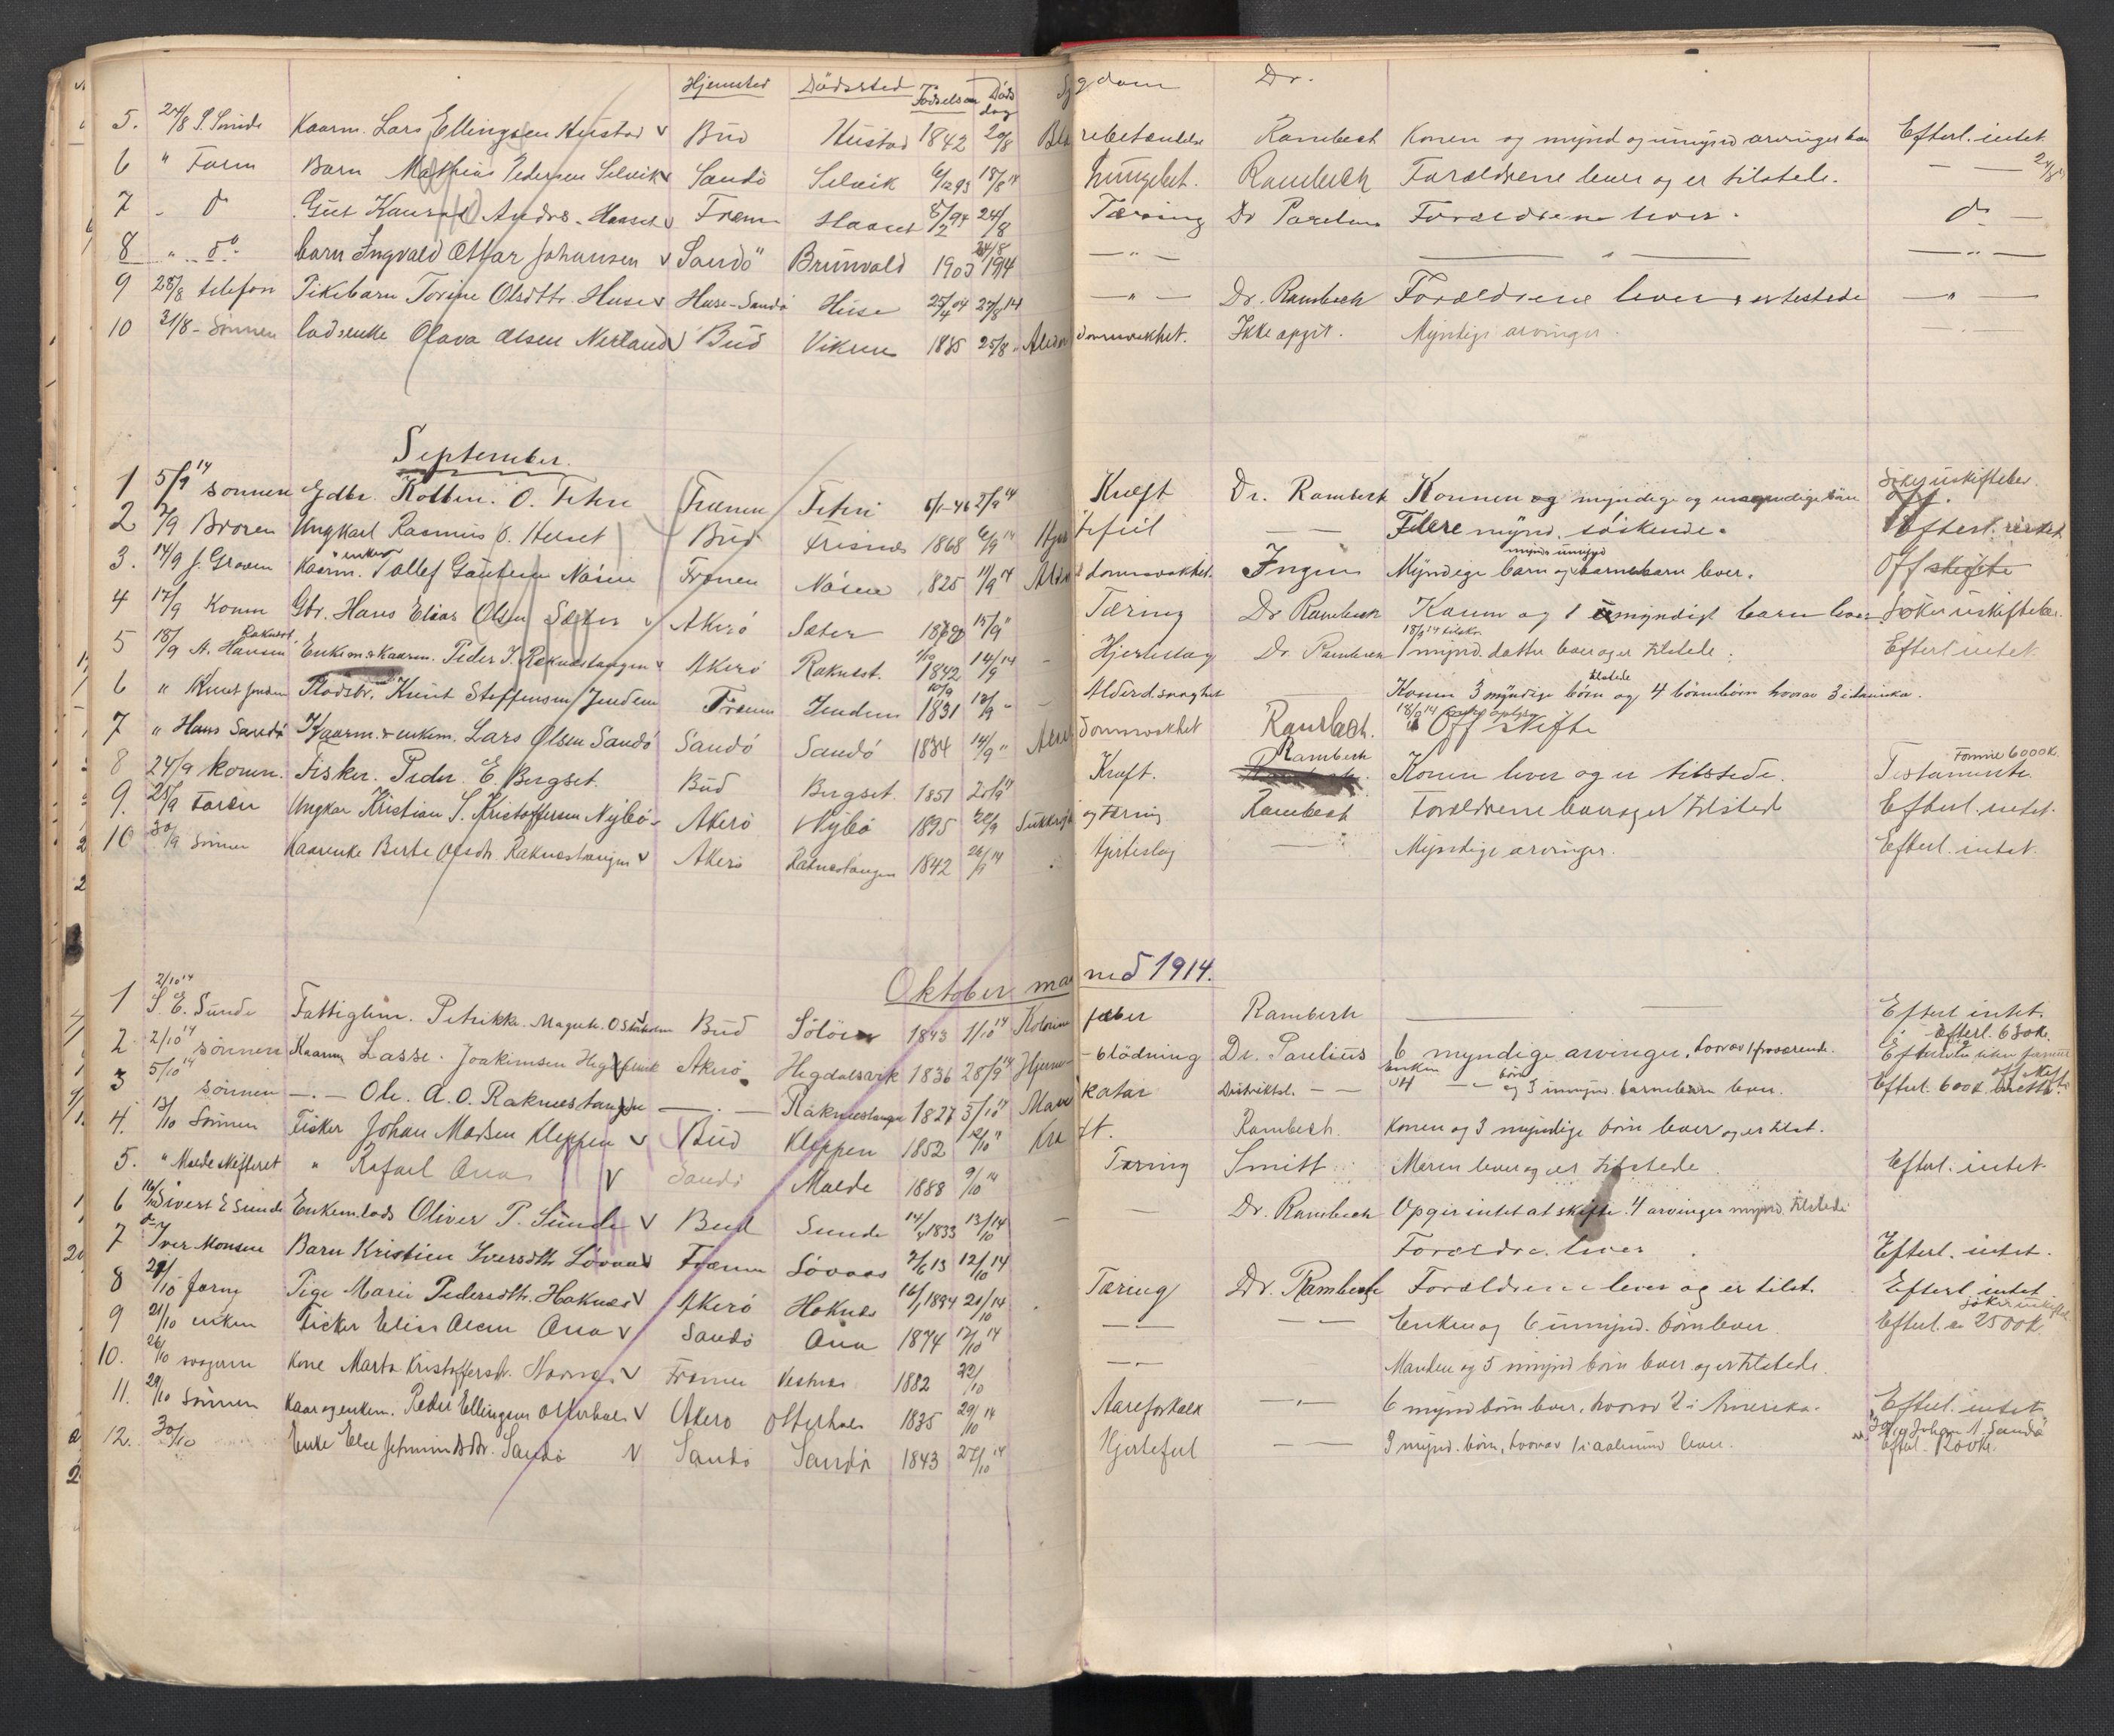 Hjemsted Dödssted Fødselsaar Döds dag Sygdom Dr.
5. 24/8 S. Sunde Kaarm. Lars Ellingsen Hustad v Bud Hustad 1842 20/8 Blærebetændelse Rambech Konen og mynd og umynd arvinger Efterl. intet
6 " Faren Barn Mathias Pedersen Selvik v Sandö Selvik 6/12 93 18/8 14 Lungebet. Rambech Forældrene lever og er tilstede. — 24/8
7 - do Gut Andrs. Haaset v Fræne Haaset 8/2 94 24/8 Tæring Dr Forældrene lever. do —
8 " do barn Ingvald Ottar Johansen v Sandö Brunvold 1903 24/8 1914 — " — — " — — " —
9 28/8 telefon Pikebarn Torine Olsdtr. Huse v Huse-Sandö Huse 25/4 04 27/8 14 — " — Dr. Rambech Forældrene lever — " —
10 31/8 - Sönnen ladsenke Olava Olsen Nerland v Bud Viken 1835 25/8 - Alderdomssvakhet. Ikke opgit. Myndige arvinger.
September.
1 5/9 14 sönnen Gdbr. O. Fræna 6/1-46 2/9 14 Kræft Dr. Rambech Konen og myndige og umyndige börn
2 7/9 Broren Ungkarl Rasmus O. Bud 1868 6/9 14 Hjertefeil — Flere mynd. söskende. Efterl. intet
3. 14/9 J. Graven Kaarm. " enkem Tollef Gautesen Nåsen Frænen Nåsen 1825 11/9 14 Alderdomssvakhet. Ingen Myndige barn og mynd umynd barnebarn lever. Off skifte
4 17/9 Konen Gbr. Hans Elias Olsen Sæter v Akerö Sæter 15/9 " Tæring Dr Rambech Konen og 1 umyndigt barn lever
5 18/9 A. Hansen Raknest. Enkem. & Kaarm. Peder J. Raknestangen v Akerö Raknest. 1842 14/9 14 - Hjerteslag Dr. Rambech 1 mynd. datter lever og er tilstede. Efterl intet
6 " Knut Jendem Knut Steffensen Jendem Fræna Jendem 10/9 1831 12/9 " - — Konen 3 myndige börn og 4 börnebörn hvorav 3 i Amerika.
7 " Hans Sandö Kaarm. & enkem. Lars Olsen Sandö Sandö Sandö 1834 14/9 " Alderdomssvakhet Rambech. Off skifte
8 24/9 konen. Fisker. Peder. E. Bergset. Bud Bergset. 1851 20/9 14 Kræft. Rambech Konen lever og er tilstede. Testamente. Formue 6000 K.
9. 25/9 Faren Ungkar Kristian S. Kristoffersen Nybö v Akerö Nybö 1895 22/9 og tæring Rambech Forældrene lever og er tilsted Efterl. intet.
10 30/9 Sönnen Kaarenke Berte Olsdtr. Raknestangen v Akerö Raknestangen 1842 26/9 14 Hjerteslag — Myndige arvinger. Efterl. intet.
Oktober maaned 1914.
1 2/10 14 S. E. Sunde Fattiglem. Petrikke. Bud 1843 1/10 14 feber Rambech — Efterl intet.
2 2/10 14 sönnen Kaarm Lasse. Joakimsen Akerö Hegdalsvik 1836 28/9 14 Hjerneblödning Dr. Paulius 6 myndige arvinger, hvorav 1 fraværende. Efterl. 630 k.
3 5/10 14 sönnen —.— Ole. A. O. Raknestangen —.— Raknestangen 1827 3/10 14 Mavekatar Distriktsl. — — 4 — börn og 3 umynd. barnebarn lever. Efterl. 600 k.
4. 13/10 Sönnen Fisker Johan Madsen Kleppen v Bud Kleppen 1852 12/10 " Kræft. Rambech. Konen og 3 myndige börn lever og er tilst.
5. " Molde skifteret " Rafael Ona v Sandö Molde 1888 9/10 14 Tæring Smitt Moren lever og er tilstede Efterl. intet
6 16/10 Sivert E Sunde Enkem. lods Oliver P. Sunde v Bud Sunde 14/4 1833 13/10 14 — — Dr. Rambech Opgir intet at skifte. 4 arvinger mynd. tilstede
7 do Iver Monsen Barn Kristine Iversdtr Lövaas Frænen Lövaas 7/6 13 12/10 14 Forældre lever Efterl. intet.
8 21/10 faren Pige Marie Pedersdtr. Haknes v Akerö Haknes 16/1 1894 20/10 14 Tæring Dr. Rambech Forældrene lever og er tilst. Efterl. intet
9 21/10 enken Fisker Elias Olsen Ona v Sandö Ona 1874 17/10 14 — — Enken og 6 umynd. börn lever. Efterl. ca 2500 k.
10. 26/10 svogeren Kone Marta Kristoffersdtr. v Frænen 1882 22/10 — — Manden og 5 umynd börn lever og er tilstede.
11. 29/10 Sönnen Kaar og enkem. Peder Ellingsen Otterhals v Akerö Otterhals 1835 29/10 14 Aareforkalk — 6 mynd börn lever, hvorav 2 i Amerika. Efterl. intet
12. 30/10 Enke Else Sandö v Sandö Sandö 1843 27/10 14 Hjertefeil — — 9 mynd. börn, hvorav 1 i aalesund lever. Johan A. Sandö Efterl.